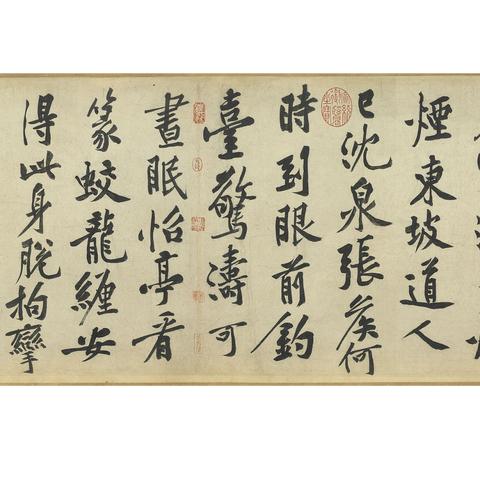 煙東坡道人
已沈泉張侯何
時到眼前釣
臺驚濤可
晝眠怡亭看
篆蛟龍纏安
得此身脫拘攣